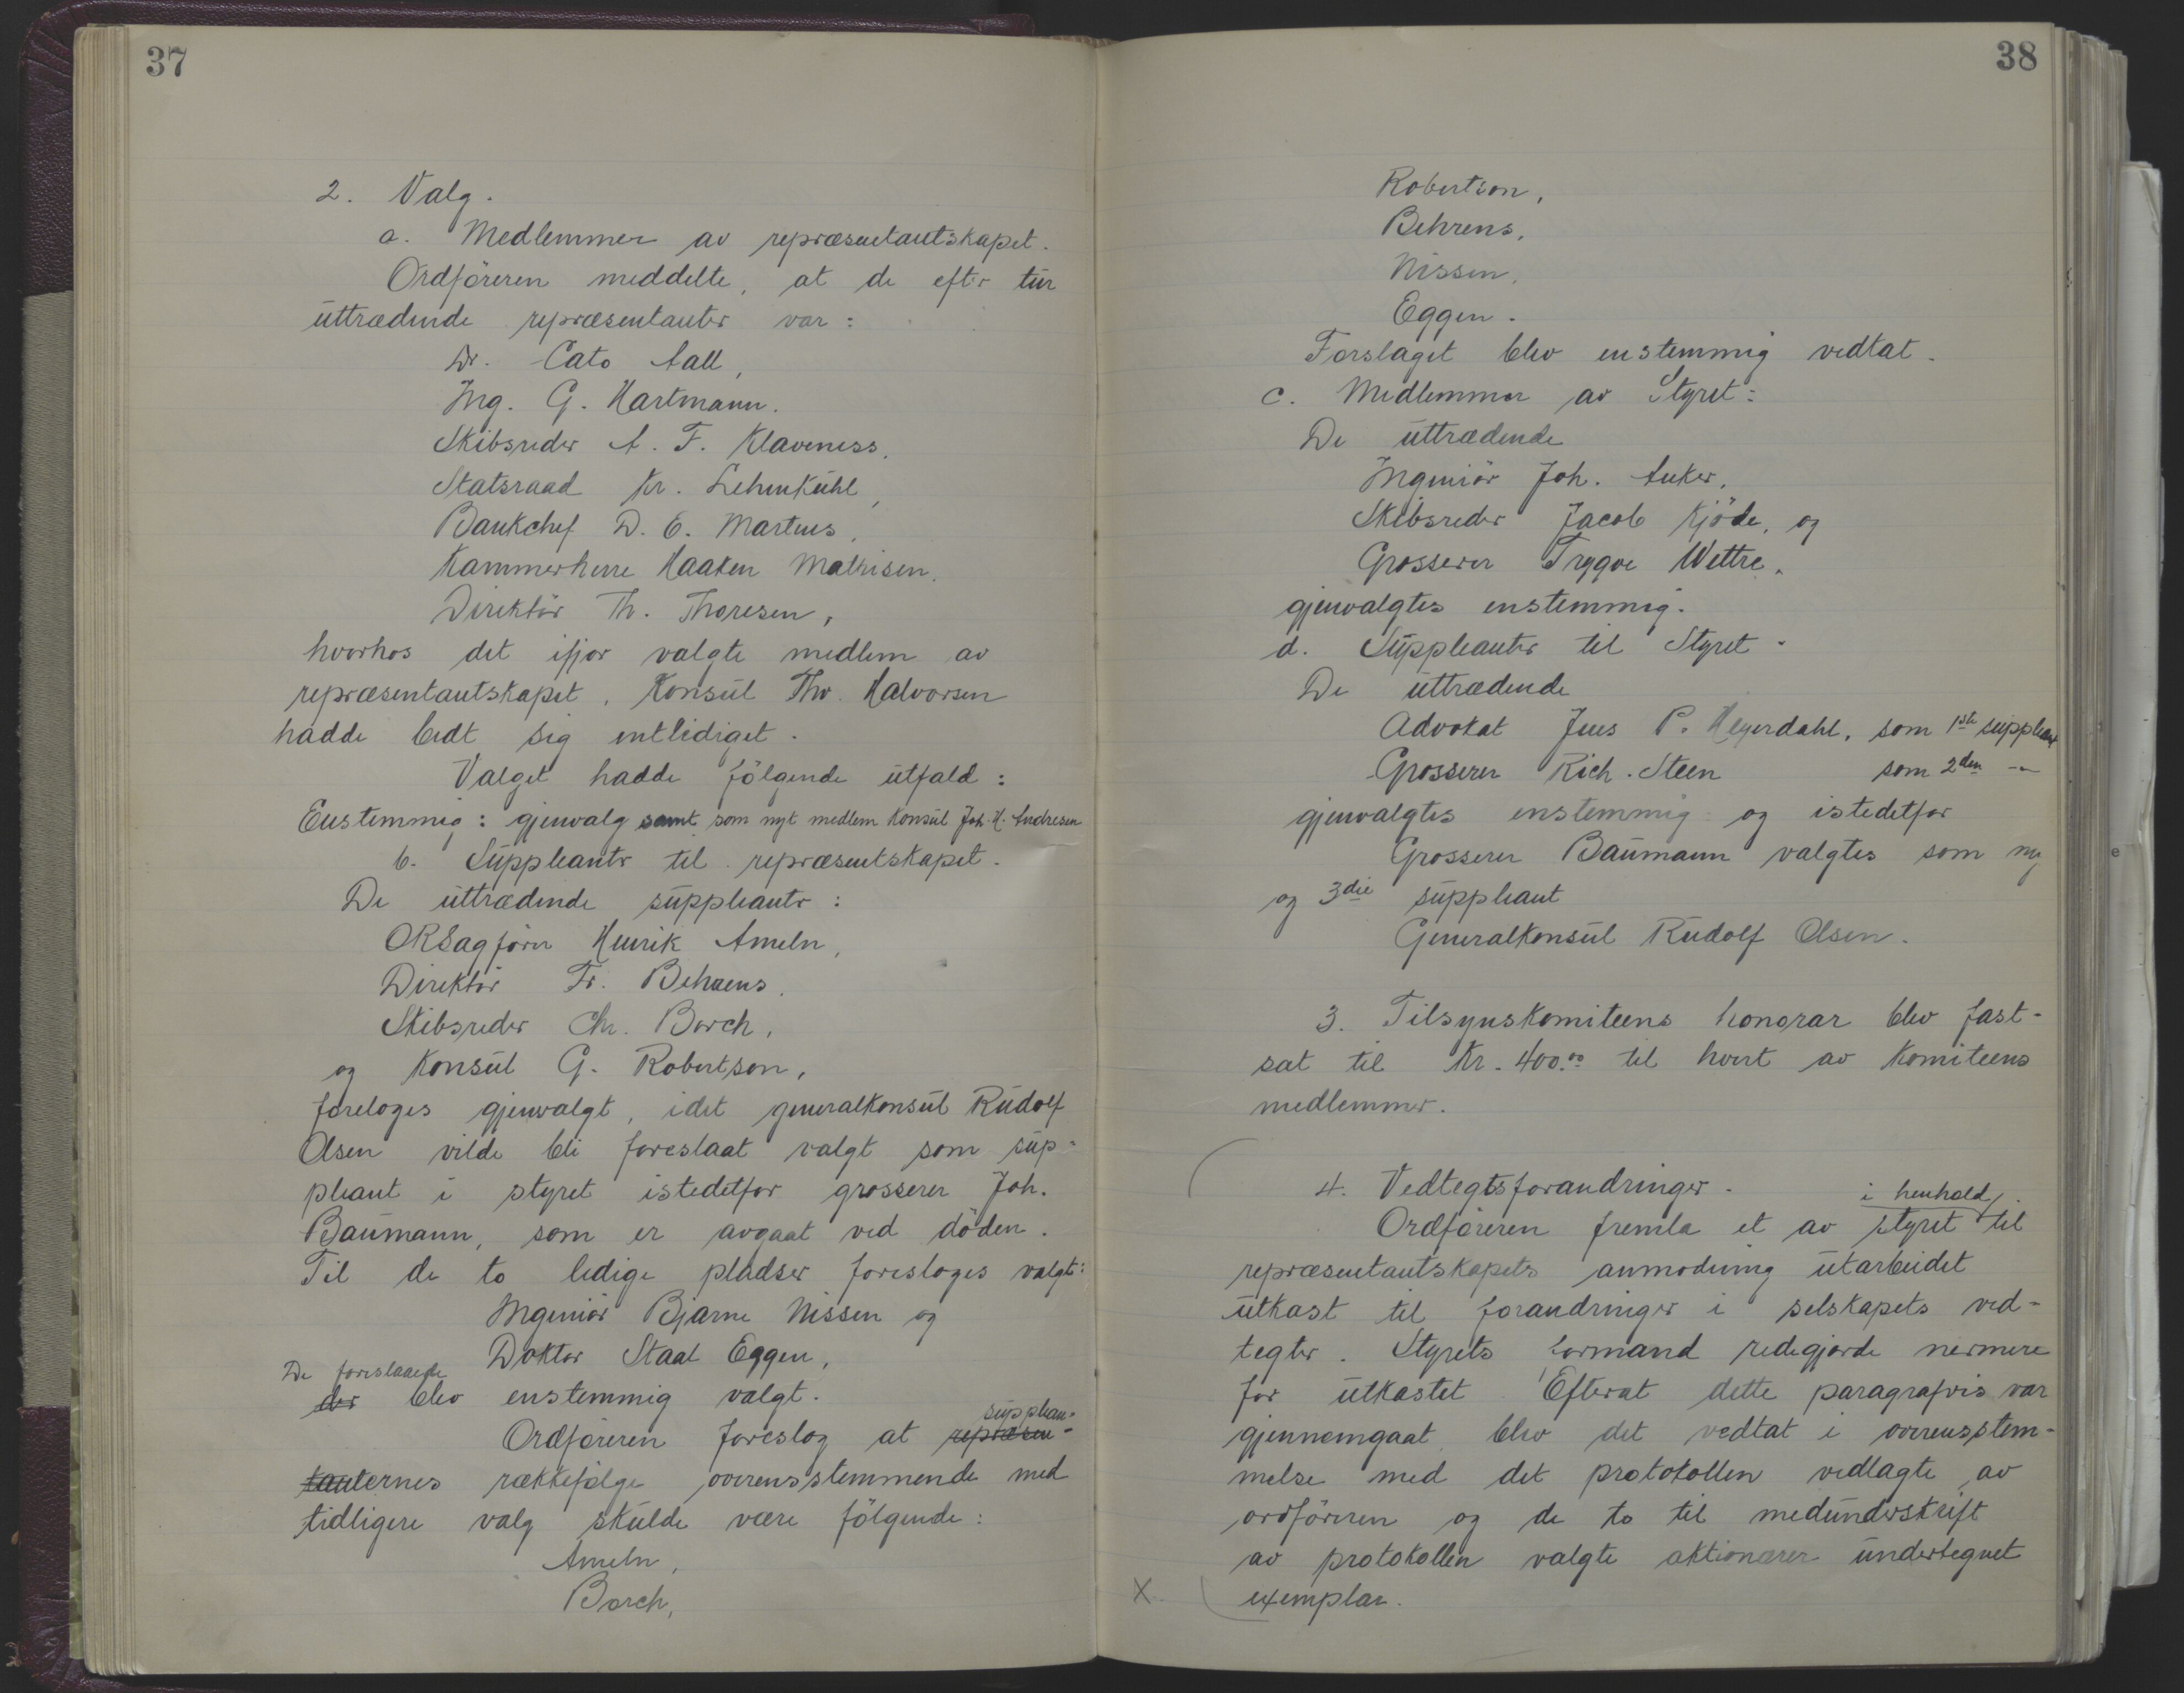 37
2. Valg.
a. Medlemmer av repræsentantskapet.
Ordföreren meddelte, at de efter tur
uttrædende repræsentanter var:
Dr. Cato Aall,
Ing. G. Hartmann.
Skibsreder A. F. Klaveness,
Statsraad Kr. Lehmkühl,
Bankchef D. E. Martens,
Kammerherre Haaken Mathisen.
Direktör Th. Thoresen,
hvorhos det ifjor valgte medlem av
repræsentantskapet, Konsul Thv. Halvorsen
hadde bedt sig entlediget.
Valget hadde fölgende utfald:
Enstemmig: gjenvalg samt som nyt medlem Konsul Joh. H. Andresen
b. Suppleanter til repræsentskapet.
De uttrædende suppleanter:
ORSagförer Henrik Ameln,
Direktör Fr. Behrens,
Skibsreder Chr. Borch,
og Konsul G. Robertson,
foreloges gjenvalgt, idet generalkonsul Rudolf
Olsen vilde bli foreslaat valgt som sup-
pleant i styret istedetfor grosserer Joh.
Baumann, som er avgaat ved döden.
Til de to ledige pladser foresloges valgt:
Ingeniör Bjarne Nissen og
Doktor Staal Eggen,
De foreslaaede
der blev enstemmig valgt.
supplean-
Ordföreren foreslog at repræsen-
tanternes rækkefölge overensstemmende med
tidligere valg skulde være fölgende:
Ameln,
Borch,
38
Robertson,
Behrens,
Nissen,
Eggen.
Forslaget blev enstemmig vedtat.
c. Medlemmer av Styret:
De uttrædende
Ingeniör Joh. Anker,
Skibsreder Jacob Kjöde, og
Grosserer Trygve Wettre,
gjenvalgtes enstemmig.
d. Suppleanter til Styret.
De uttrædende
Advokat Jens P. Heyerdahl, som 1ste suppleant
Grosserer Rich. Steen som 2den -"-
gjenvalgtes enstemmig og istedetfor
Grosserer Baumann valgtes som ny
og 3die suppleant
Generalkonsul Rudolf Olsen.
3. Tilsynskomiteens honorar blev fast-
sat til Kr. 400.00 til hvert av Komiteens
medlemmer.
4. Vedtegtsforandringer.
i henhold
Ordföreren fremla et av styret til
repræsentantskapets anmodning utarbeidet
utkast til forandringer i selskapets ved-
tegter. Styrets formand redegjorde nermere
for utkastet. Efterat dette paragrafvis var
gjennemgaat, blev det vedtat i overensstem-
melse med det protokollen vedlagte, av
ordföreren og de to til medunderskrift
av protokollen valgte aktionærer undertegnet
X. exemplar.